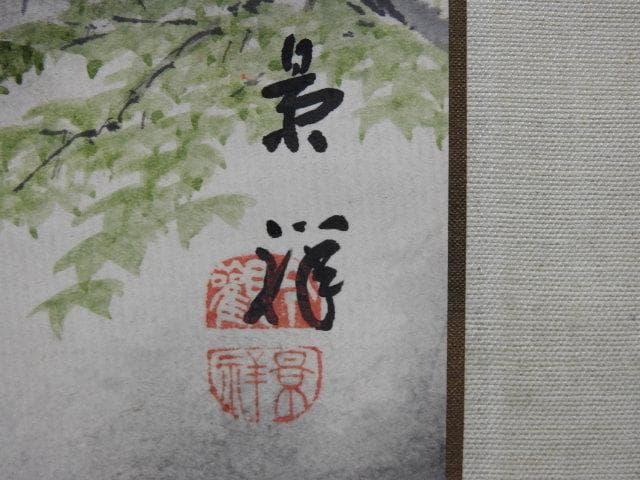 景祥
景祥